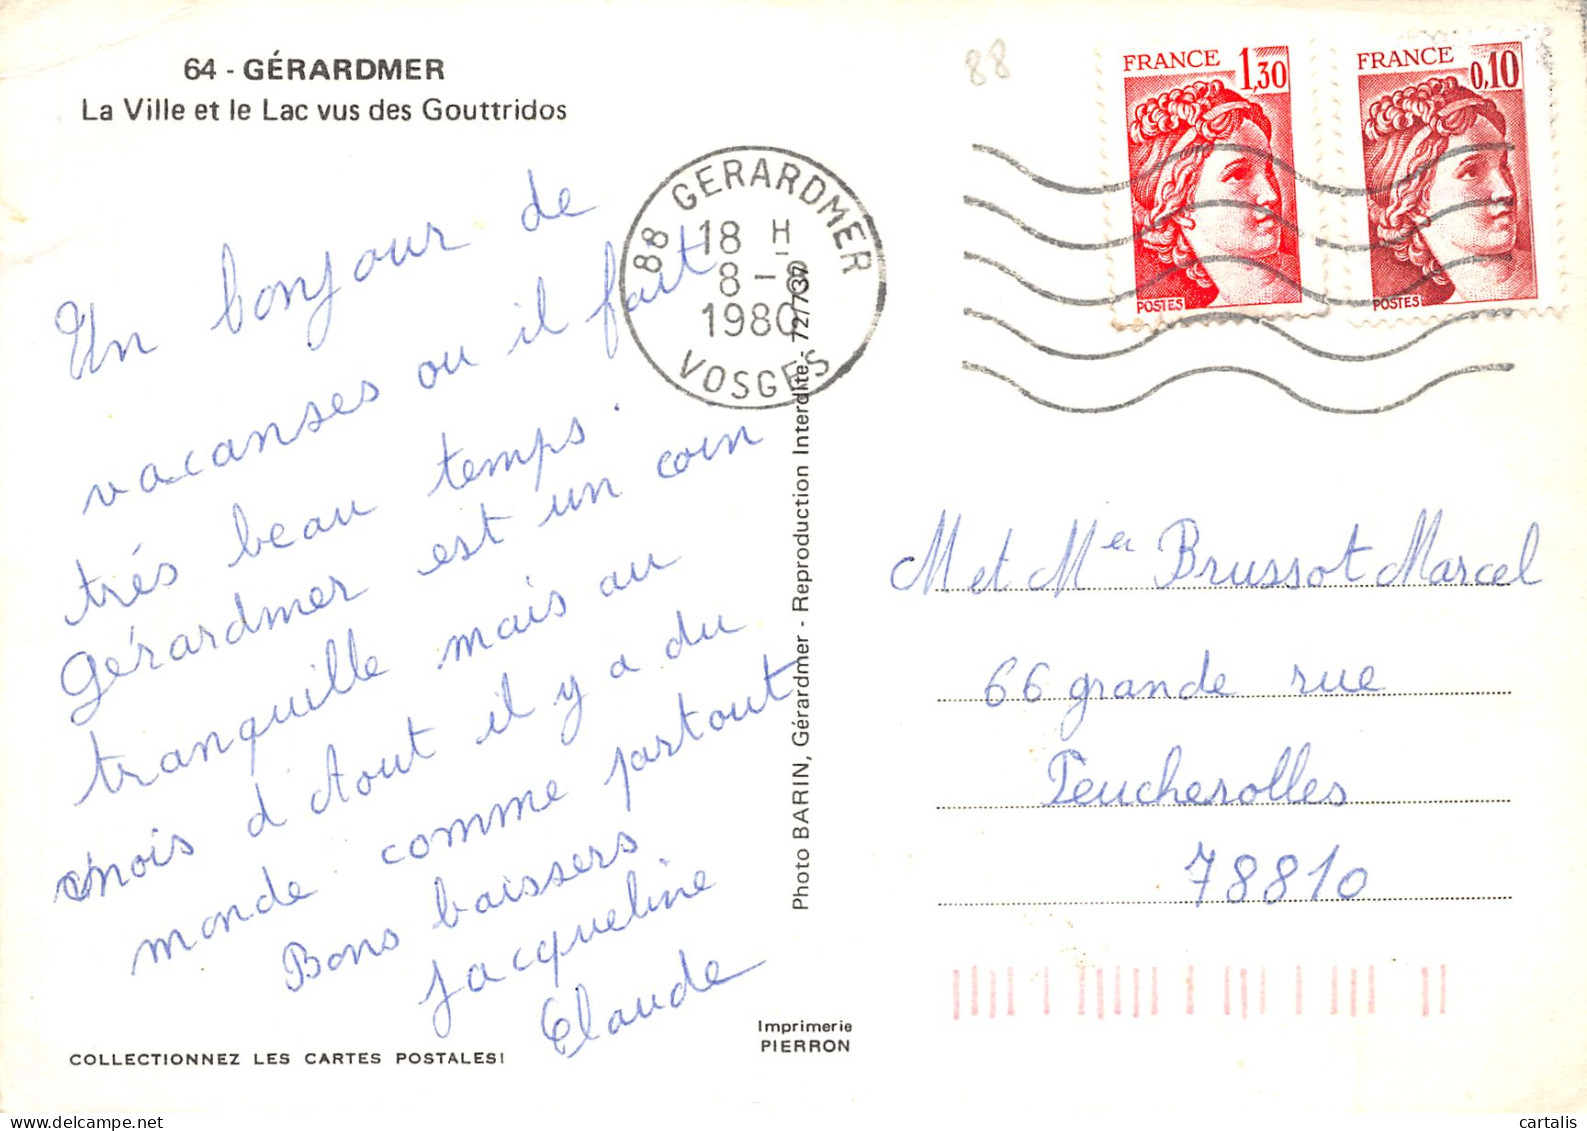 64 - GÉRARDMER
La Ville et le Lac vus des Gouttridos
Un bonjour de
vacanses ou il fait
trés beau temps.
Gérardmer est un coin
tranquille mais au
mois d'Aout il y a du
monde comme partout
Bons baissers
Jacqueline
Claude
COLLECTIONNEZ LES CARTES POSTALES!
Imprimerie
PIERRON
Photo BARIN, Gérardmer - Reproduction Interdite - 72/737
88 GERARDMER
18 H
8 - 8
1980
VOSGES
88
FRANCE 1,30
POSTES
FRANCE 0,10
POSTES
M et Mer Brussot Marcel
66 grande rue
Feucherolles
78810
cartalis